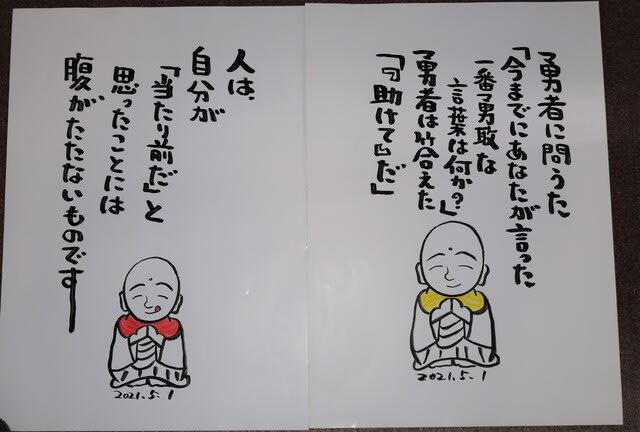 勇者に問うた
「今までにあなたが言った
一番勇敢な
言葉は何か？」
勇者は答えた
「『助けて』だ」
2021.5.1
人は、
自分が
「当たり前だ」と
思ったことには
腹がたたないものです
2021.5.1